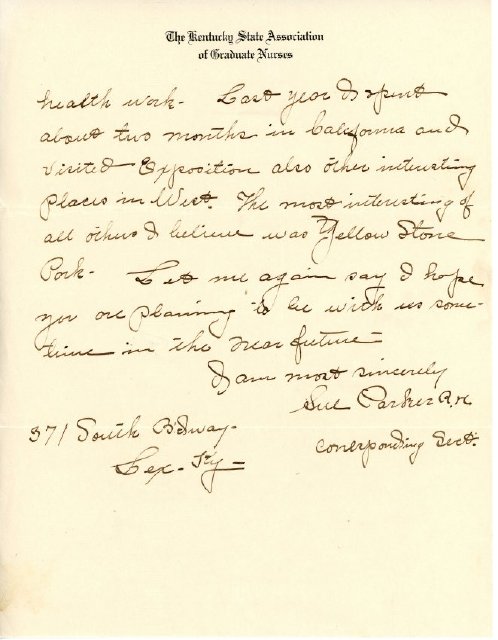 The Kentucky State Association
of Graduate Nurses
health work - Last year I spent
about two months in California and
visited Exposition also other interesting
places in West. The most interesting of
all others I believe was Yellow Stone
Park - Let me again say I hope
you are planning to be with us some-
time in the near future -
I am most sincerely
Sue Parker R.N
371 South B'dway - corresponding Sect.
Lex - Ky -